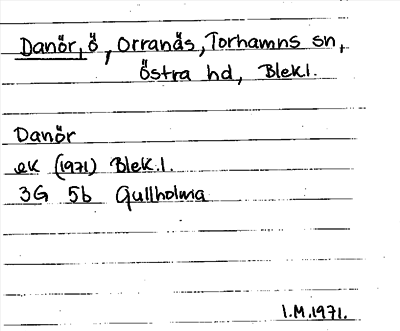 Danör, ö, Orranäs, Torhamns sn,
Östra hd, Blek.l.
Danör
ek (1971) Blek.l.
3G 5b Gullholma
I.M.1971.